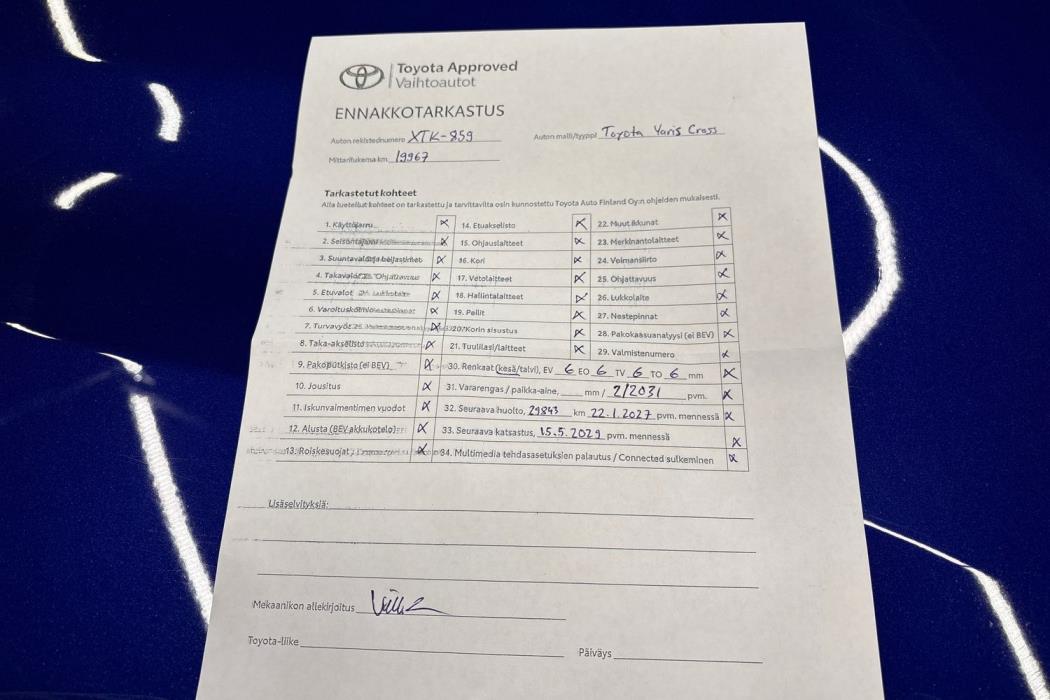 Toyota Approved
Vaihtoautot
ENNAKKOTARKASTUS
Auton rekisterinumero XTK-859
Auton malli/tyyppi Toyota Yaris Cross
Mittarilukema km 19967
Tarkastetut kohteet
Alla luetellut kohteet on tarkastettu ja tarvittavilta osin kunnostettu Toyota Auto Finland Oy:n ohjeiden mukaisesti.
1. Käyttöjarru
2. Seisontajarru
3. Suuntavalot ja heijastimet
4. Takavalot
5. Etuvalot
6.
7. Turvavyöt
8. Taka-akselisto
9. Pakoputkisto (ei BEV)
10. Jousitus
11. Iskunvaimentimen vuodot
12. Alusta (BEV akkukotelo)
13. Roiskesuojat
14. Etuakselisto
15. Ohjauslaitteet
16. Kori
17. Vetolaitteet
18. Hallintalaitteet
19. Peilit
20. Korin sisustus
21. Tuulilasi/laitteet
22. Muut ikkunat
23. Merkinantolaitteet
24. Voimansiirto
25. Ohjattavuus
26. Lukkolaite
27. Nestepinnat
28. Pakokaasuanalyysi (ei BEV)
29. Valmistenumero
30. Renkaat (kesä/talvi), EV 6 EO 6 TV 6 TO 6 mm
31. Vararengas / paikka-aine, mm / 2/2031 pvm.
32. Seuraava huolto, 29843 km 22.1.2027 pvm. mennessä
33. Seuraava katsastus, 15.5.2029 pvm. mennessä
34. Multimedia tehdasasetuksien palautus / Connected sulkeminen
Lisäselvityksiä:
Mekaanikon allekirjoitus
Toyota-liike
Päiväys